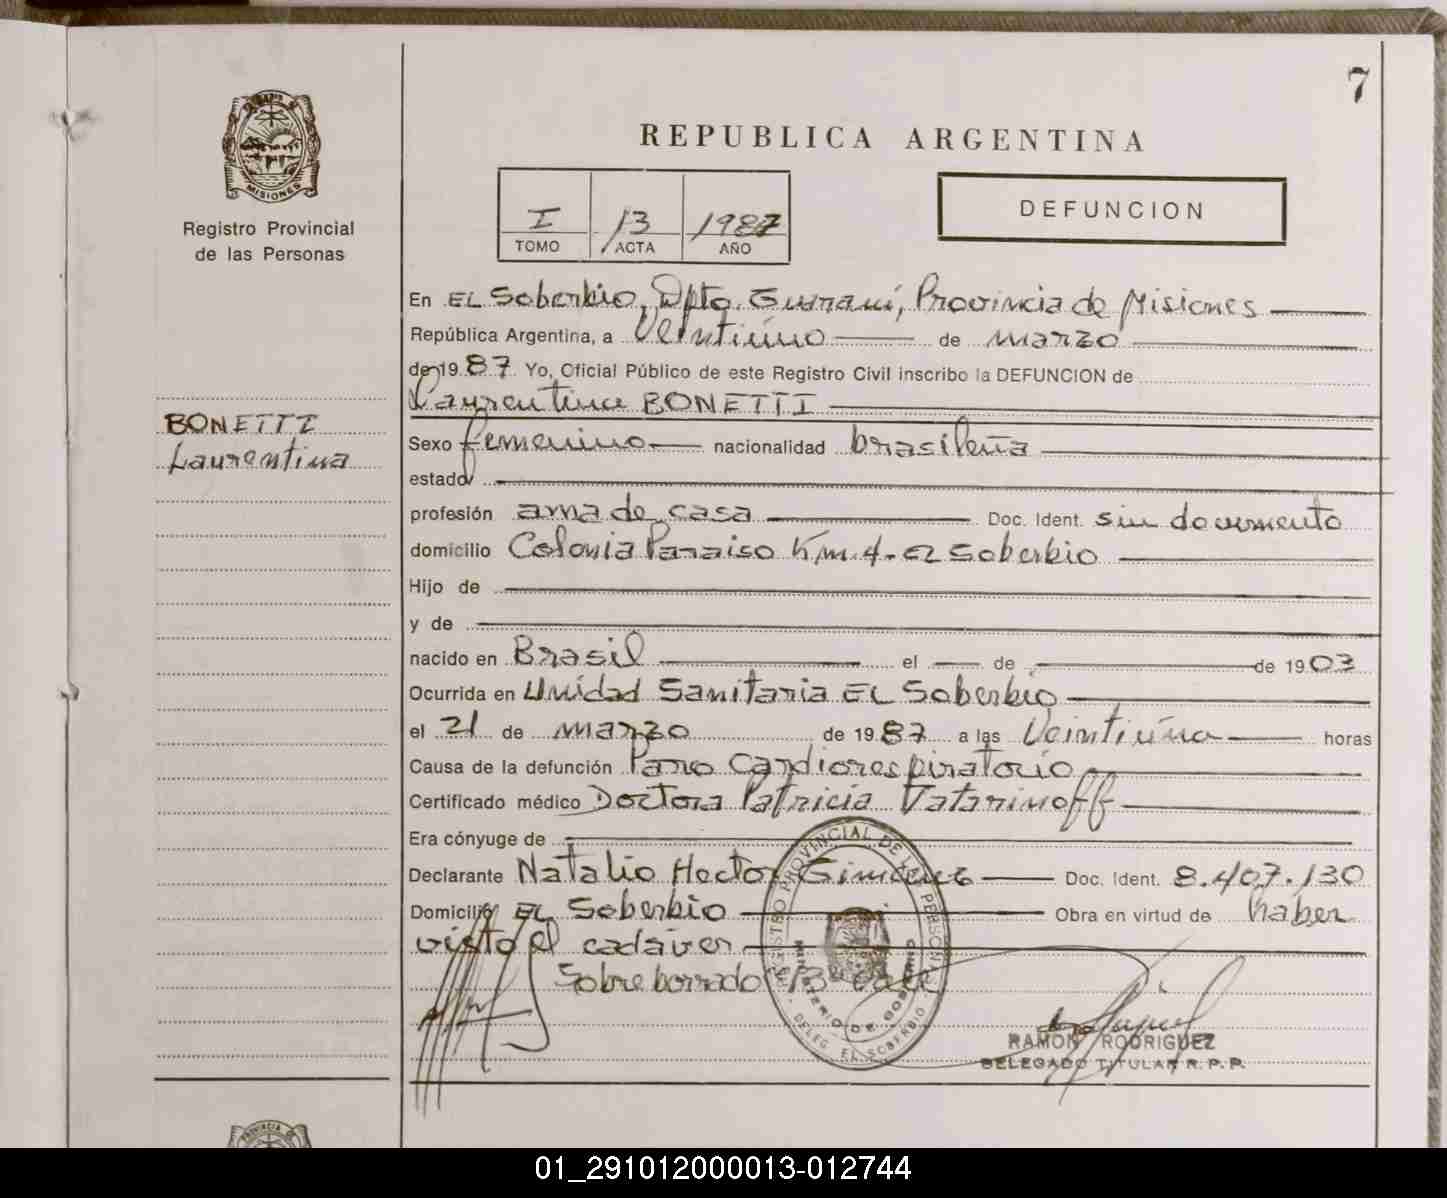 7
MISIONES
Registro Provincial
de las Personas
BONETTI
Laurentina
REPUBLICA ARGENTINA
I 13 1987
TOMO ACTA AÑO
DEFUNCION
En EL Soberbio, Dpto. Guaraní, Provincia de Misiones
República Argentina, a Veintiúno de marzo
de 19 87 Yo, Oficial Público de este Registro Civil inscribo la DEFUNCION de
Laurentina BONETTI
Sexo femenino nacionalidad brasileña
estado
profesión ama de casa Doc. Ident. sin documento
domicilio Colonia Paraiso Km. 4. EL Soberbio
Hijo de
y de
nacido en Brasil el de de 19 03
Ocurrida en Unidad Sanitaria EL Soberbio
el 21 de marzo de 19 87 a las Veintiúna horas
Causa de la defunción Paro Cardiorespiratorio
Certificado médico Doctora Patricia Tatarinoff
Era cónyuge de
Declarante Natalio Hector Gimenez Doc. Ident. 8.407.130
Domicilio EL Soberbio Obra en virtud de haber
visto el cadáver
Sobre borrado "13" Vale
REGISTRO PROVINCIAL DE LAS PERSONAS
MINISTERIO DE GOBIERNO
DELEG. EL SOBERBIO
RAMON RODRIGUEZ
DELEGADO TITULAR R.P.P.
PROVINCIA DE
01_291012000013-012744